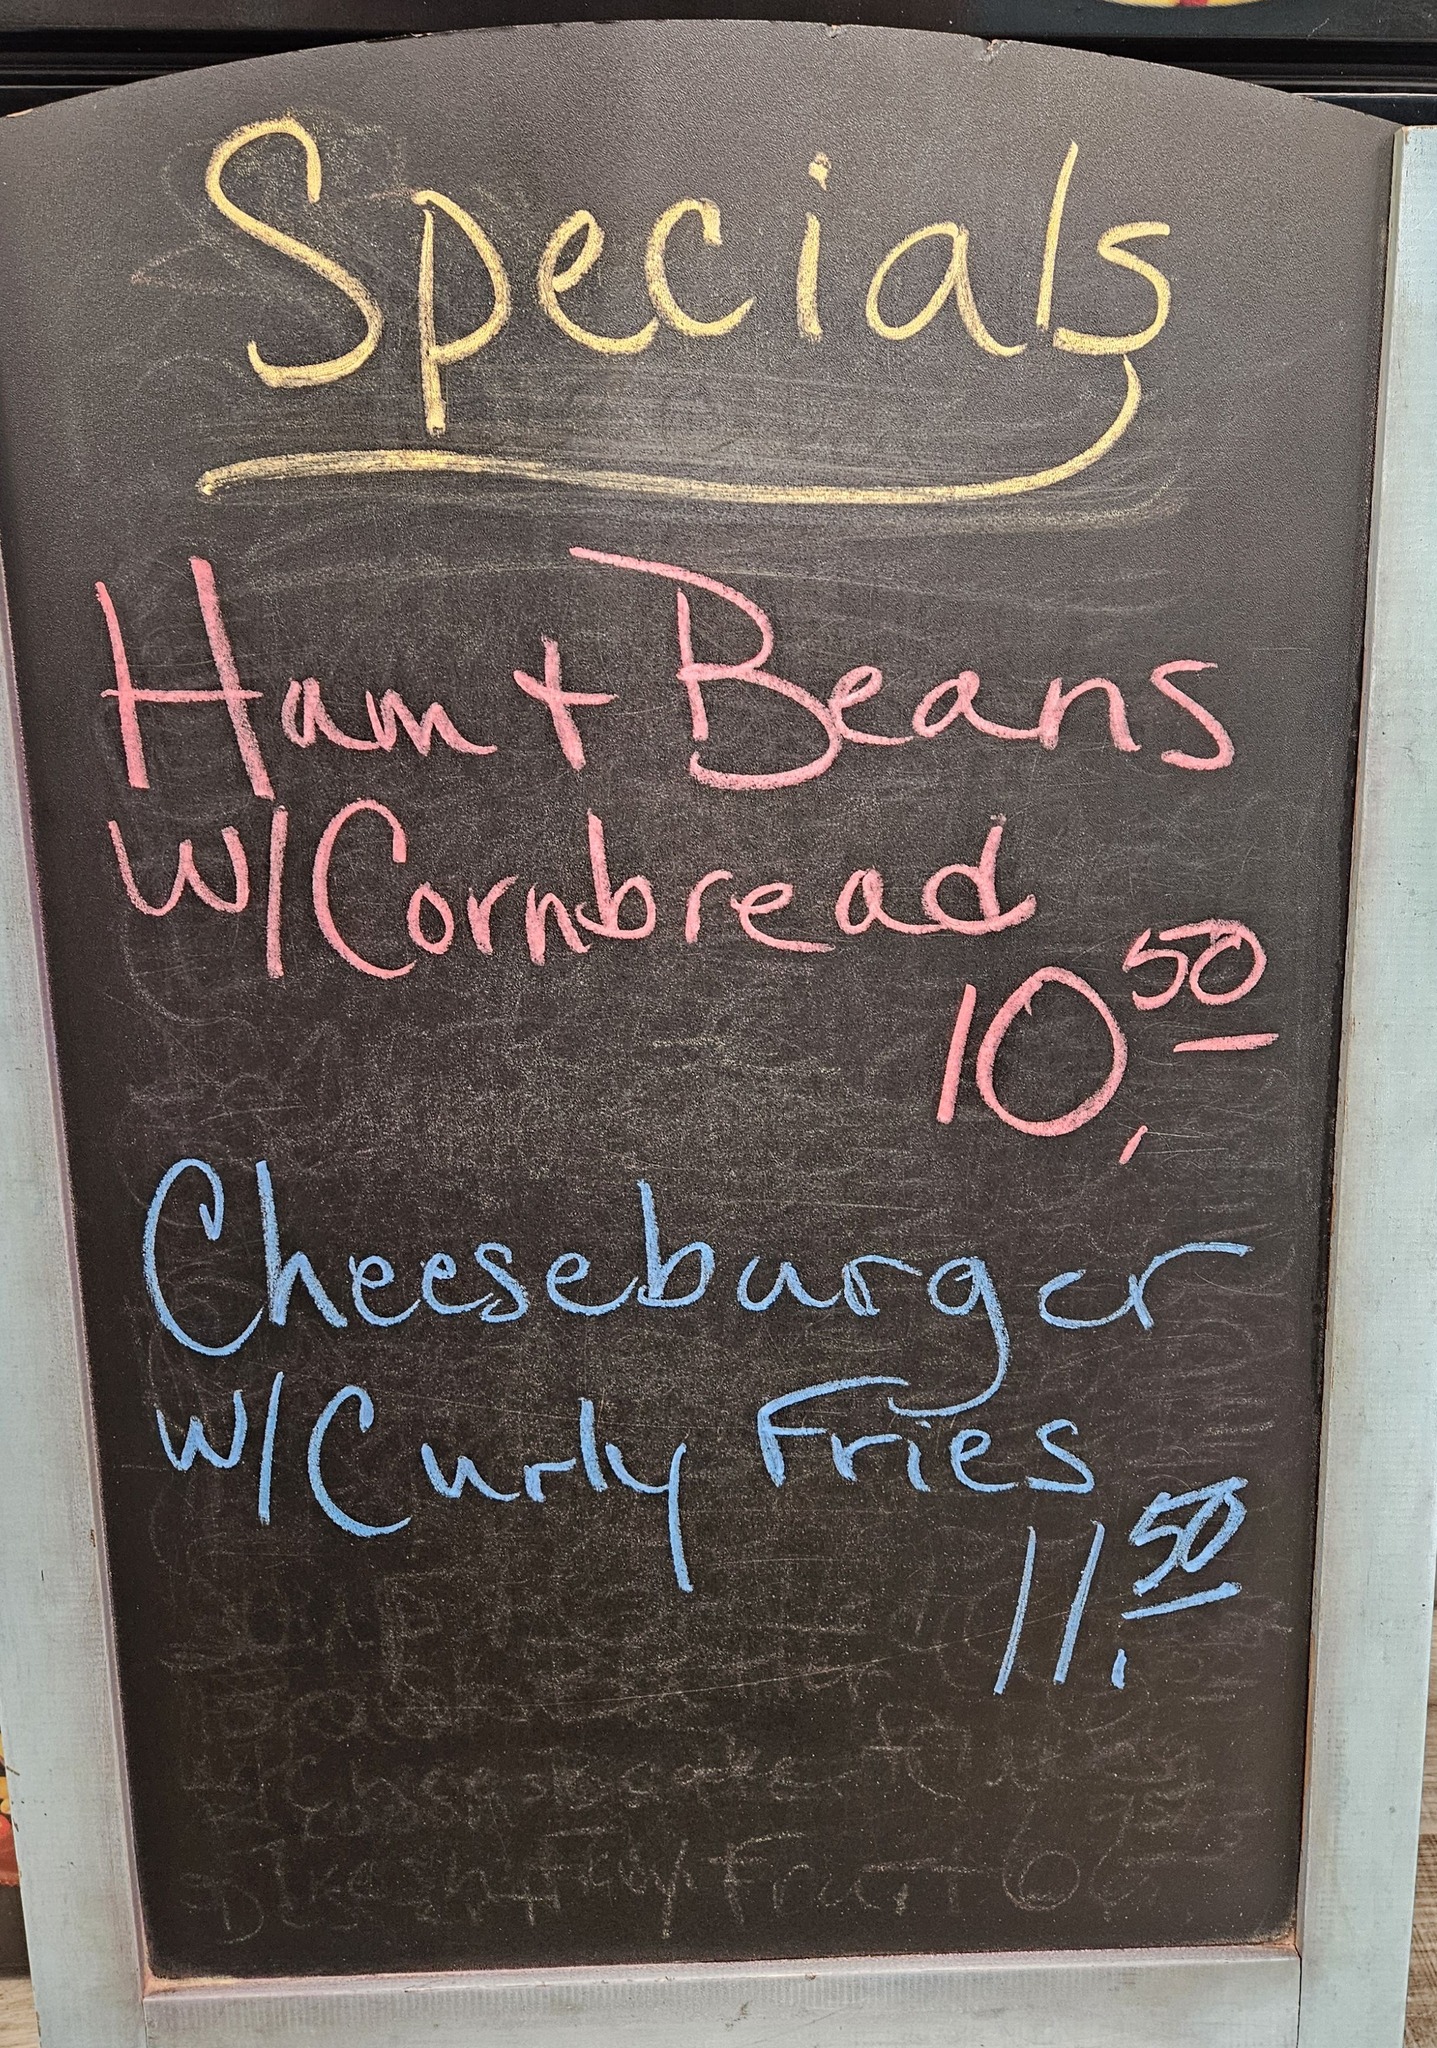 Specials
Ham + Beans
W/Cornbread
10.50
Cheeseburger
W/Curly Fries
11.50